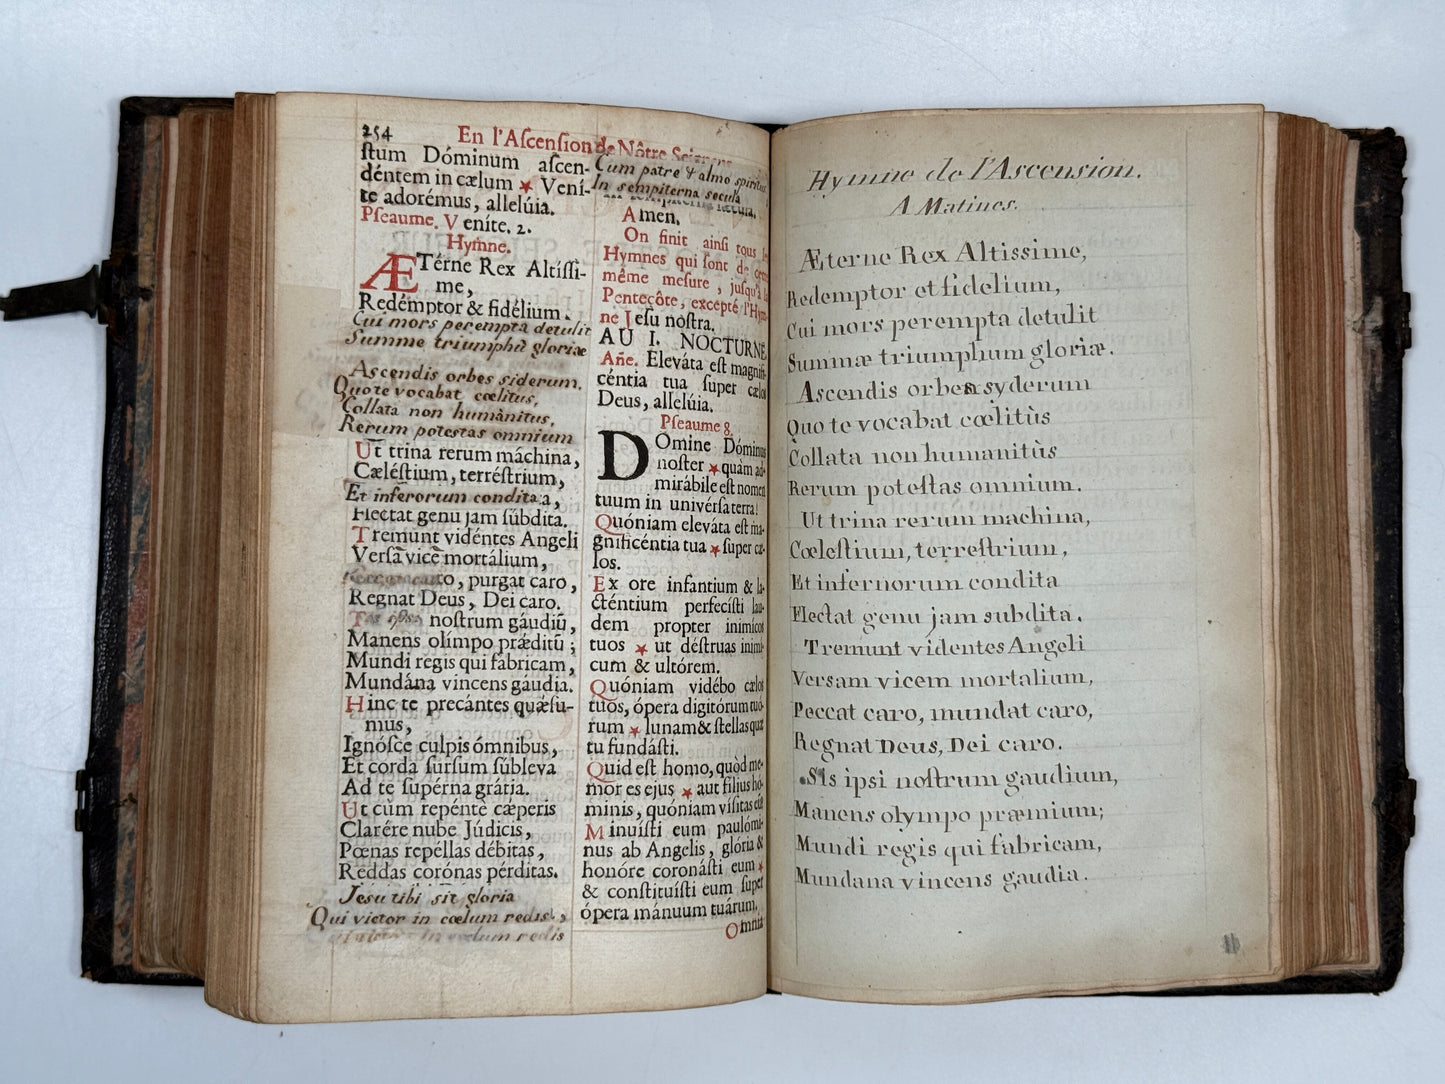 254
En l'Ascension de Nôtre Seigneur
stum Dóminum ascen-
déntem in cælum ★ Vení-
te adorémus, allelúia.
Pseaume. Veníte. 2.
Hymne.
ÆTérne Rex Altíssi-
me,
Redémptor & fidélium.
Cui mors perempta detulit
Summe triumphũ gloriæ
Ascendis orbes siderum,
Quo te vocabat cœlitus,
Collata non humànitus,
Rerum potestas omnium
Ut trina rerum máchina,
Cæléstium, terréstrium,
Et inferorum condita a,
Flectat genu jam súbdita.
Tremunt vidéntes Angeli
Versã vicẽ mortálium,
purgat caro,
Regnat Deus, Dei caro.
nostrum gáudiũ,
Manens olímpo præditũ;
Mundi regis qui fabricam,
Mundána vincens gáudia.
Hinc te precántes quæsu-
mus,
Ignósce culpis ómnibus,
Et corda sursum súbleva
Ad te supérna grátia.
Ut cùm repénte cæperis
Clarére nube Júdicis,
Pœnas repéllas débitas,
Reddas corónas pérditas.
Jesu tibi sit gloria
Qui victor in cœlum redis,
in cœlum redis
Cum patre & almo spiritu
In sempiterna secula
Amen.
On finit ainsi tous les
Hymnes qui sont de cette
même mesure, jusqu'à la
Pentecôte, excepté l'Hym-
ne Jesu nostra.
AU I. NOCTURNE
Añe. Eleváta est magnifi-
céntia tua super cælos
Deus, allelúia.
Pseaume 8.
DOmine Dóminus
noster ★ quàm ad-
mirábile est nomen
tuum in univérsa terra!
Quóniam eleváta est ma-
gnificéntia tua ★ super cæ-
los.
Ex ore infantium & la-
cténtium perfecísti lau-
dem propter inimícos
tuos ★ ut déstruas inimí-
cum & ultórem.
Quóniam vidébo cælos
tuos, ópera digitórum tuó-
rum ★ lunam & stellas quæ
tu fundásti.
Quid est homo, quòd me-
mor es ejus ★ aut filius hó-
minis, quóniam vísitas eũ
Minuísti eum paulómi-
nus ab Angelis, glória &
honóre coronásti eum ★
& constituísti eum super
ópera mánuum tuárum.
Omnia
Hymne de l'Ascension.
A Matines.
Æterne Rex Altissime,
Redemptor et fidelium,
Cui mors perempta detulit
Summæ triumphum gloriæ.
Ascendis orbes syderum
Quo te vocabat cœlitùs
Collata non humanitùs
Rerum potestas omnium.
Ut trina rerum machina,
Cœlestium, terrestrium,
Et infernorum condita
Flectat genu jam subdita.
Tremunt videntes Angeli
Versam vicem mortalium,
Peccat caro, mundat caro,
Regnat Deus, Dei caro.
Sis ipsi nostrum gaudium,
Manens olympo præmium;
Mundi regis qui fabricam,
Mundana vincens gaudia.